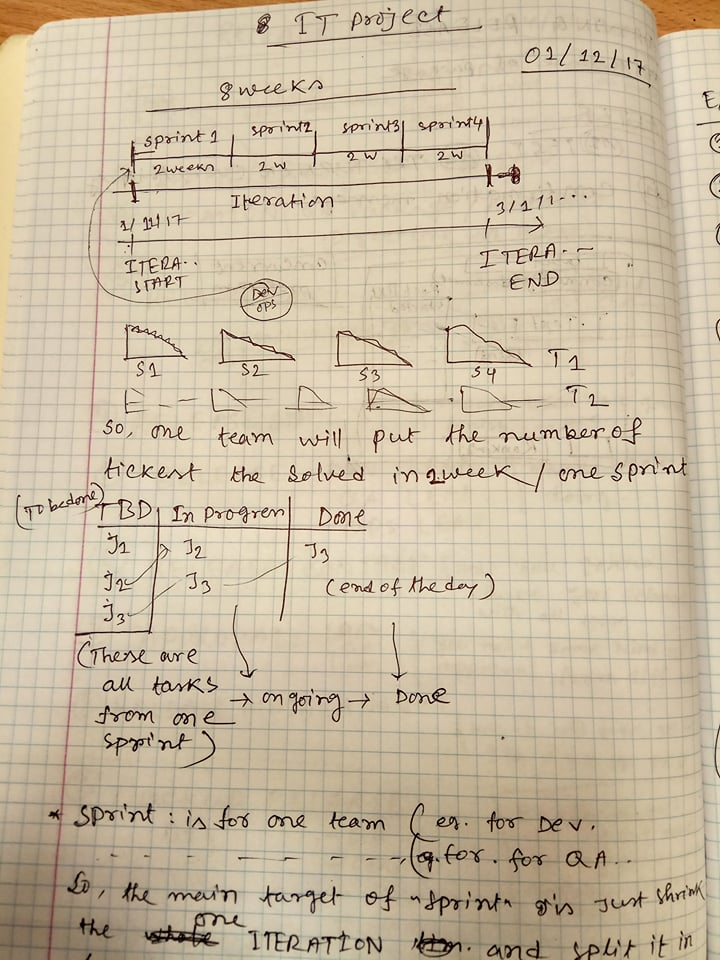 8 IT Project
01/12/17
8 weeks
sprint 1 sprint2 sprint3 sprint4
2 weeks 2 W 2 W 2 W
Iteration
1/11/17 3/1/1...
ITERA.. ITERA...
START END
Dev
ops
S1 S2 S3 S4 T1
T2
So, one team will put the number of
tickest the solved in 2 week / one sprint
(TO be done) TBD In progren Done
J1 J2 J3
J2 J3 (end of the day)
J3
(These are
all tasks → on going → Done
from one
sprint)
* Sprint : is for one team (eg. for Dev.
for. for QA..
So, the main target of "Sprint" is Just shrink
the one ITERATION and split it in